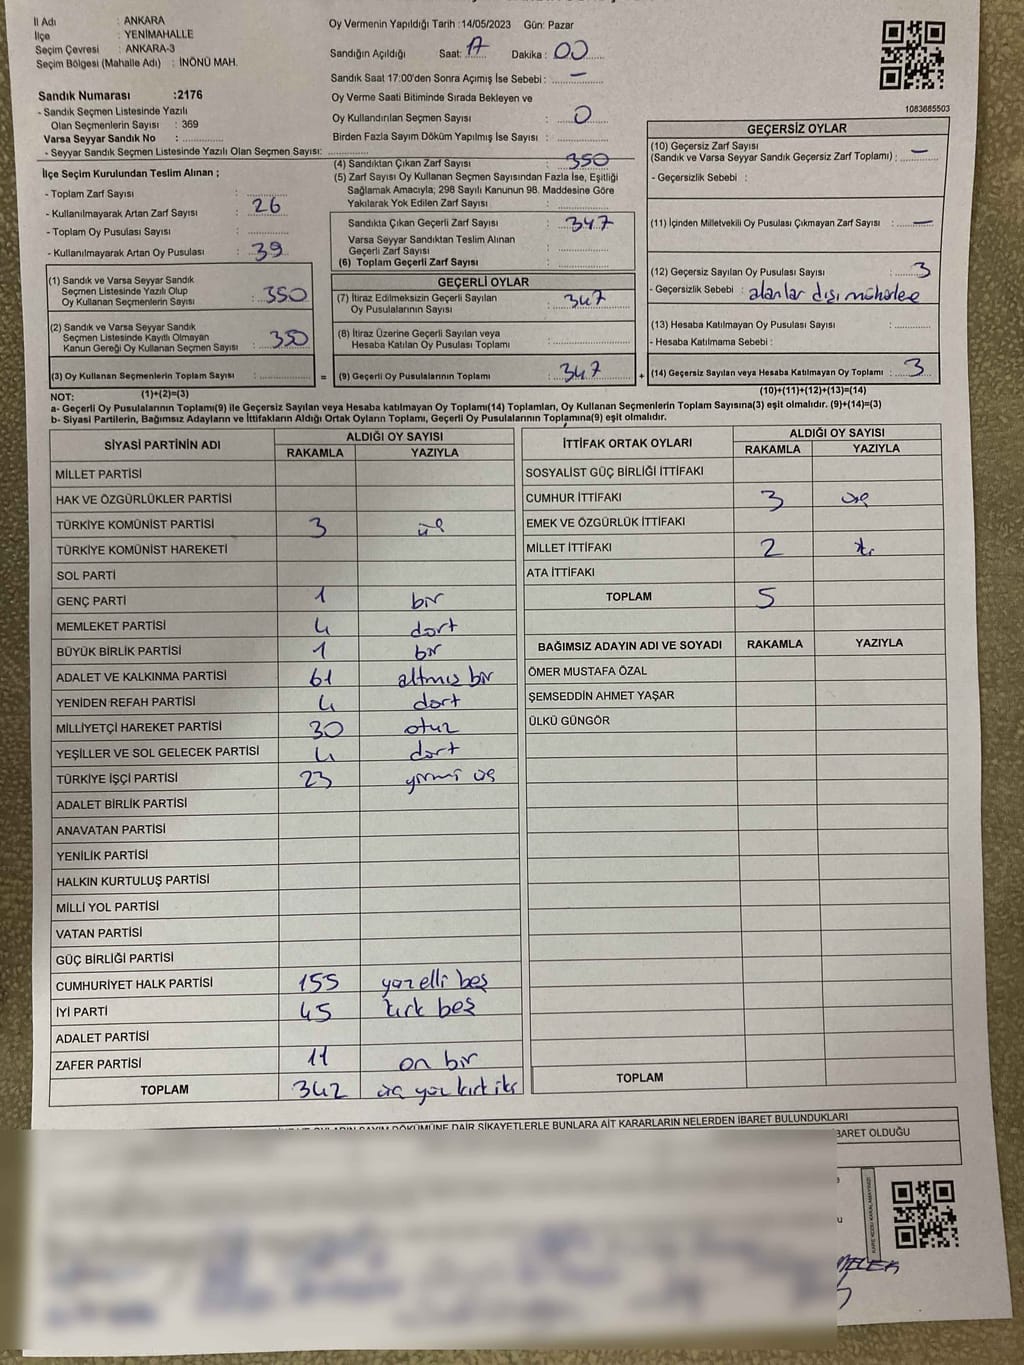 İl Adı : ANKARA
İlçe : YENİMAHALLE
Seçim Çevresi : ANKARA-3
Seçim Bölgesi (Mahalle Adı) : İNÖNÜ MAH.
Sandık Numarası :2176
- Sandık Seçmen Listesinde Yazılı
Olan Seçmenlerin Sayısı : 369
Varsa Seyyar Sandık No :
- Seyyar Sandık Seçmen Listesinde Yazılı Olan Seçmen Sayısı:
İlçe Seçim Kurulundan Teslim Alınan ;
- Toplam Zarf Sayısı :
- Kullanılmayarak Artan Zarf Sayısı : 26
- Toplam Oy Pusulası Sayısı :
- Kullanılmayarak Artan Oy Pusulası : 39
(1) Sandık ve Varsa Seyyar Sandık
Seçmen Listesinde Yazılı Olup
Oy Kullanan Seçmenlerin Sayısı : 350
(2) Sandık ve Varsa Seyyar Sandık
Seçmen Listesinde Kayıtlı Olmayan
Kanun Gereği Oy Kullanan Seçmen Sayısı : 350
(3) Oy Kullanan Seçmenlerin Toplam Sayısı : =
Oy Vermenin Yapıldığı Tarih :14/05/2023 Gün: Pazar
Sandığın Açıldığı Saat: 17 Dakika : 00
Sandık Saat 17:00'den Sonra Açımış İse Sebebi : —
Oy Verme Saati Bitiminde Sırada Bekleyen ve
Oy Kullandırılan Seçmen Sayısı : 0
Birden Fazla Sayım Döküm Yapılmış İse Sayısı :
(4) Sandıktan Çıkan Zarf Sayısı : 350
(5) Zarf Sayısı Oy Kullanan Seçmen Sayısından Fazla İse, Eşitliği
Sağlamak Amacıyla; 298 Sayılı Kanunun 98. Maddesine Göre
Yakılarak Yok Edilen Zarf Sayısı :
Sandıkta Çıkan Geçerli Zarf Sayısı : 347
Varsa Seyyar Sandıktan Teslim Alınan
Geçerli Zarf Sayısı :
(6) Toplam Geçerli Zarf Sayısı :
GEÇERLİ OYLAR
(7) İtiraz Edilmeksizin Geçerli Sayılan
Oy Pusulalarının Sayısı : 347
(8) İtiraz Üzerine Geçerli Sayılan veya
Hesaba Katılan Oy Pusulası Toplamı :
(9) Geçerli Oy Pusulalarının Toplamı : 347 +
1083685503
GEÇERSİZ OYLAR
(10) Geçersiz Zarf Sayısı
(Sandık ve Varsa Seyyar Sandık Geçersiz Zarf Toplamı) : —
- Geçersizlik Sebebi :
(11) İçinden Milletvekili Oy Pusulası Çıkmayan Zarf Sayısı : —
(12) Geçersiz Sayılan Oy Pusulası Sayısı : 3
- Geçersizlik Sebebi : alanlar dışı mühürleme
(13) Hesaba Katılmayan Oy Pusulası Sayısı :
- Hesaba Katılmama Sebebi :
(14) Geçersiz Sayılan veya Hesaba Katılmayan Oy Toplamı : 3
NOT: (1)+(2)=(3) (10)+(11)+(12)+(13)=(14)
a- Geçerli Oy Pusulalarının Toplamı(9) ile Geçersiz Sayılan veya Hesaba katılmayan Oy Toplamı(14) Toplamları, Oy Kullanan Seçmenlerin Toplam Sayısına(3) eşit olmalıdır. (9)+(14)=(3)
b- Siyasi Partilerin, Bağımsız Adayların ve İttifakların Aldığı Ortak Oyların Toplamı, Geçerli Oy Pusulalarının Toplamına(9) eşit olmalıdır.
SİYASİ PARTİNİN ADI ALDIĞI OY SAYISI
RAKAMLA YAZIYLA
MİLLET PARTİSİ
HAK VE ÖZGÜRLÜKLER PARTİSİ
TÜRKİYE KOMÜNİST PARTİSİ 3 üç
TÜRKİYE KOMÜNİST HAREKETİ
SOL PARTİ
GENÇ PARTİ 1 bir
MEMLEKET PARTİSİ 4 dort
BÜYÜK BİRLİK PARTİSİ 1 bir
ADALET VE KALKINMA PARTİSİ 61 altmıs bir
YENİDEN REFAH PARTİSİ 4 dort
MİLLİYETÇİ HAREKET PARTİSİ 30 otuz
YEŞİLLER VE SOL GELECEK PARTİSİ 4 dort
TÜRKİYE İŞÇİ PARTİSİ 23 yirmi üç
ADALET BİRLİK PARTİSİ
ANAVATAN PARTİSİ
YENİLİK PARTİSİ
HALKIN KURTULUŞ PARTİSİ
MİLLİ YOL PARTİSİ
VATAN PARTİSİ
GÜÇ BİRLİĞİ PARTİSİ
CUMHURİYET HALK PARTİSİ 155 yüz elli beş
İYİ PARTİ 45 kırk beş
ADALET PARTİSİ
ZAFER PARTİSİ 11 on bir
TOPLAM 342 üç yüz kırk iki
İTTİFAK ORTAK OYLARI ALDIĞI OY SAYISI
RAKAMLA YAZIYLA
SOSYALİST GÜÇ BİRLİĞİ İTTİFAKI
CUMHUR İTTİFAKI 3 üç
EMEK VE ÖZGÜRLÜK İTTİFAKI
MİLLET İTTİFAKI 2
ATA İTTİFAKI
TOPLAM 5
BAĞIMSIZ ADAYIN ADI VE SOYADI RAKAMLA YAZIYLA
ÖMER MUSTAFA ÖZAL
ŞEMSEDDİN AHMET YAŞAR
ÜLKÜ GÜNGÖR
TOPLAM
SAYIM DÖKÜMÜNE DAİR ŞİKAYETLERLE BUNLARA AİT KARARLARIN NELERDEN İBARET BULUNDUKLARI
BARET OLDUĞU